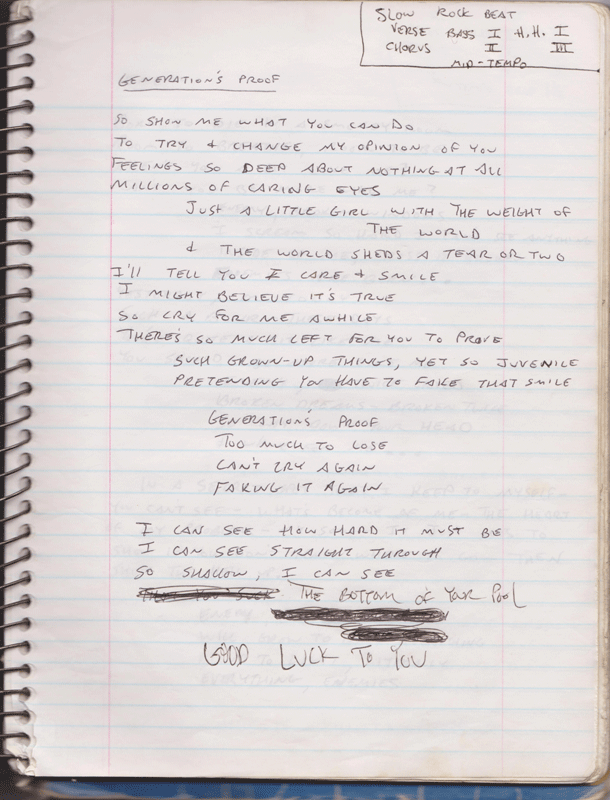 SLOW ROCK BEAT
VERSE BASS I H.H. I
CHORUS II III
MID-TEMPO
GENERATION'S PROOF
SO SHOW ME WHAT YOU CAN DO
TO TRY & CHANGE MY OPINION OF YOU
FEELINGS SO DEEP ABOUT NOTHING AT ALL
MILLIONS OF CARING EYES
JUST A LITTLE GIRL WITH THE WEIGHT OF
THE WORLD
& THE WORLD SHEDS A TEAR OR TWO
I'LL TELL YOU I CARE & SMILE
I MIGHT BELIEVE IT'S TRUE
SO CRY FOR ME AWHILE
THERE'S SO MUCH LEFT FOR YOU TO PROVE
SUCH GROWN-UP THINGS, YET SO JUVENILE
PRETENDING YOU HAVE TO FAKE THAT SMILE
GENERATION'S PROOF
TOO MUCH TO LOSE
CAN'T CRY AGAIN
FAKING IT AGAIN
I CAN SEE HOW HARD IT MUST BE
I CAN SEE STRAIGHT THROUGH
SO SHALLOW, I CAN SEE
THE BOTTOM OF YOUR POOL
GOOD LUCK TO YOU